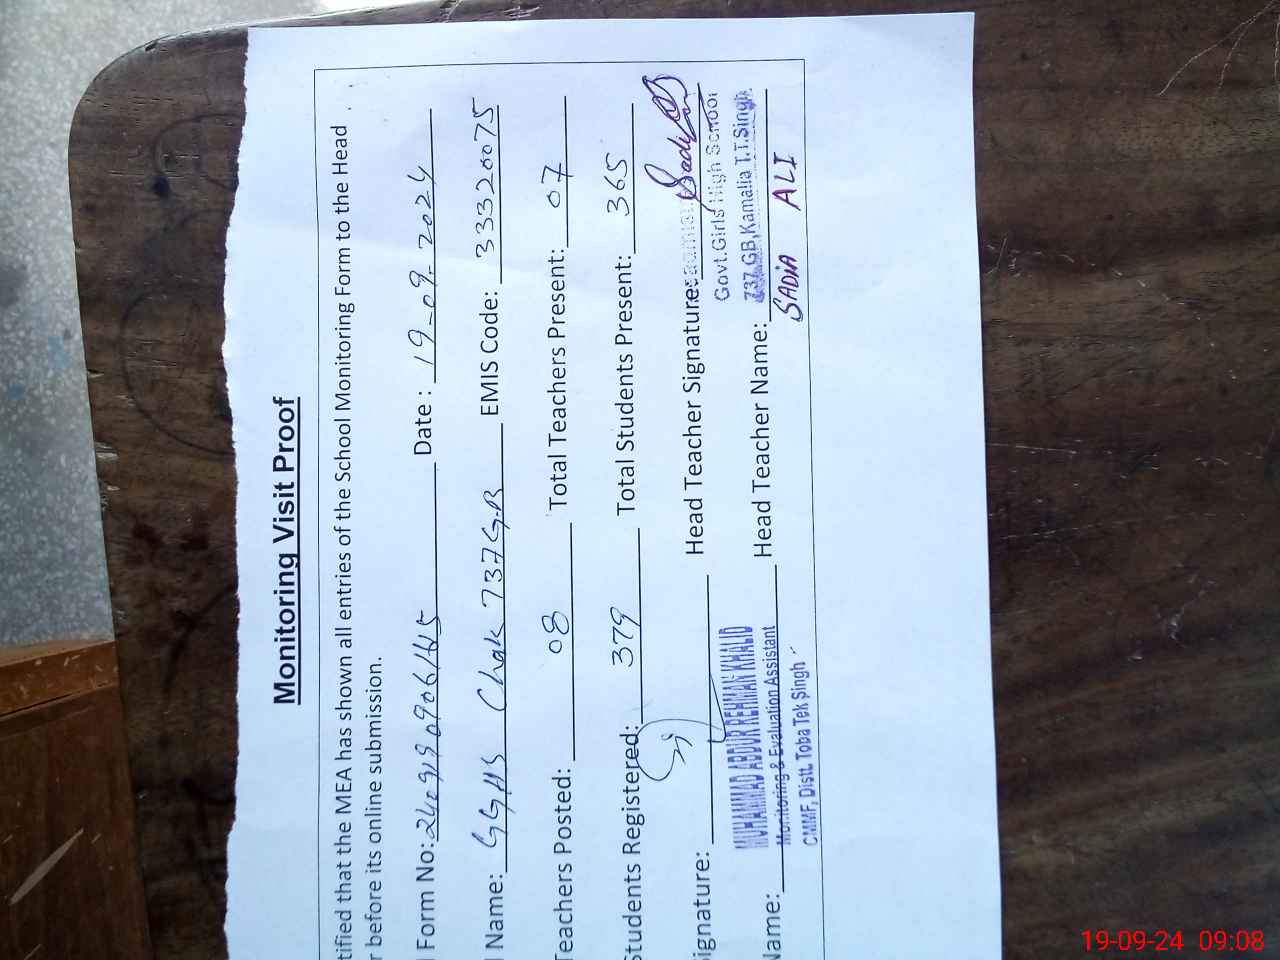 Monitoring Visit Proof
tified that the MEA has shown all entries of the School Monitoring Form to the Head
r before its online submission.
l Form No: Date : 19-09-2024
l Name: GGHS Chak 737 G.B EMIS Code: 33320075
Teachers Posted: 08 Total Teachers Present: 07
Students Registered: 379 Total Students Present: 365
ignature: Head Teacher Signature:
Govt.Girls High School
Name: MUHAMMAD ABDUR REHMAN KHALID Head Teacher Name: 737 GB,Kamalia T.T.Singh
Monitoring & Evaluation Assistant SADIA ALI
CMMF, Distt. Toba Tek Singh
19-09-24 09:08